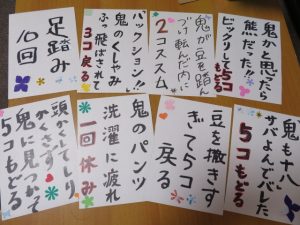 鬼かと思ったら
熊だった!!
ビックリして5コ
もどる
鬼が豆を踏ん
づけ転んだ内に
2コススム
ハックション!!
鬼のくしゃみ
ふっ飛ばされて
3コ戻る
足踏み
10回
鬼も十八
サバよんでバレた
5コもどる
豆を撒きす
ぎて5コ
戻る
鬼のパンツ
洗濯に疲れ
一回休み
頭かくしてしり
かくさず
鬼に見つかって
5コもどる